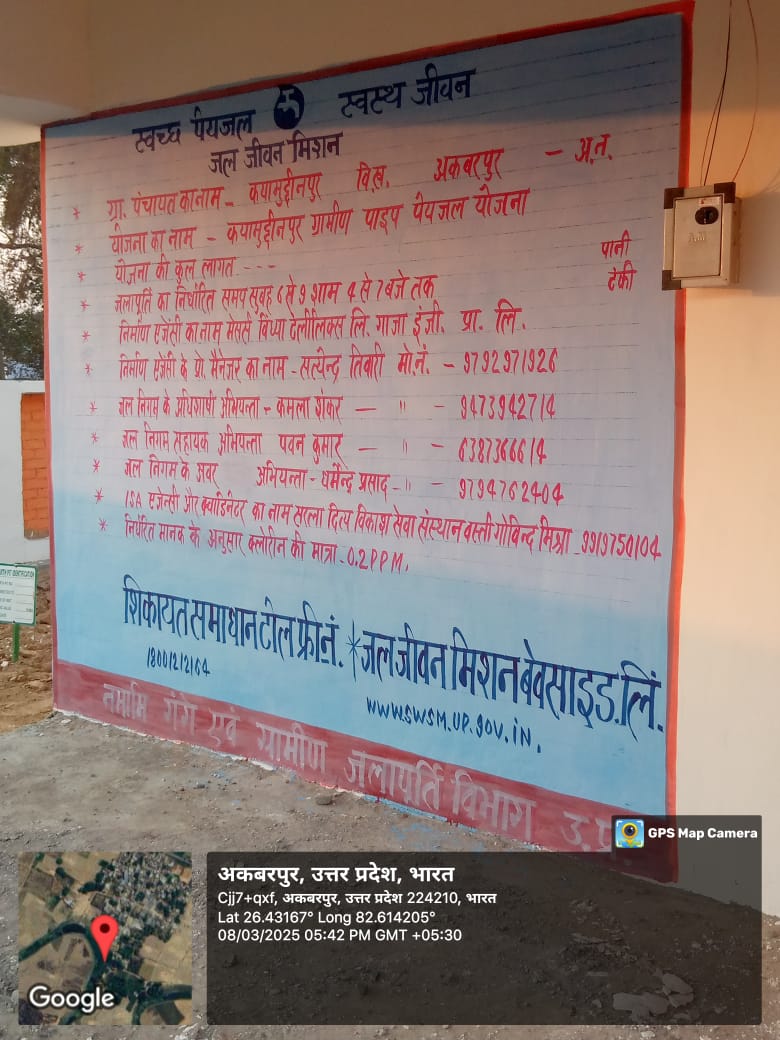 स्वच्छ पेयजल स्वस्थ जीवन
जल जीवन मिशन
* ग्रा. पंचायत का नाम - कयामुद्दीनपुर वि.ख. अकबरपुर - अ.न.
* योजना का नाम - कयामुद्दीनपुर ग्रामीण पाइप पेयजल योजना
* योजना की कुल लागत - - -
पानी
टंकी
* जलापूर्ति का निर्धारित समय सुबह 6 से 9 शाम 4 से 7 बजे तक
* निर्माण एजेंसी का नाम मेसर्स विंध्या टेलीलिंक्स लि. गाजा इंजी. प्रा. लि.
* निर्माण एजेंसी के प्रो. मैनेजर का नाम - सत्येन्द्र तिवारी मो.नं. - 9792971926
* जल निगम के अधिशाषी अभियन्ता - कमला शंकर — " - 9473942714
* जल निगम सहायक अभियन्ता पवन कुमार — " - 638736614
* जल निगम के अवर अभियन्ता - धर्मेन्द्र प्रसाद - " - 9794762404
* ISA एजेन्सी और क्वाडिनेटर का नाम सरला दित्य विकाश सेवा संस्थान बस्ती गोविन्द मिश्रा - 9919750104
* निर्धारित मानक के अनुसार क्लोरीन की मात्रा - 0.2 PPM.
शिकायत समाधान टोल फ्री नं. * जल जीवन मिशन बेवसाइड लिं.
18001212164
www.swsm.up.gov.in.
नमामि गंगे एवं ग्रामीण जलापूर्ति विभाग उ.प्र.
GPS Map Camera
अकबरपुर, उत्तर प्रदेश, भारत
Cjj7+qxf, अकबरपुर, उत्तर प्रदेश 224210, भारत
Lat 26.43167° Long 82.614205°
08/03/2025 05:42 PM GMT +05:30
Google